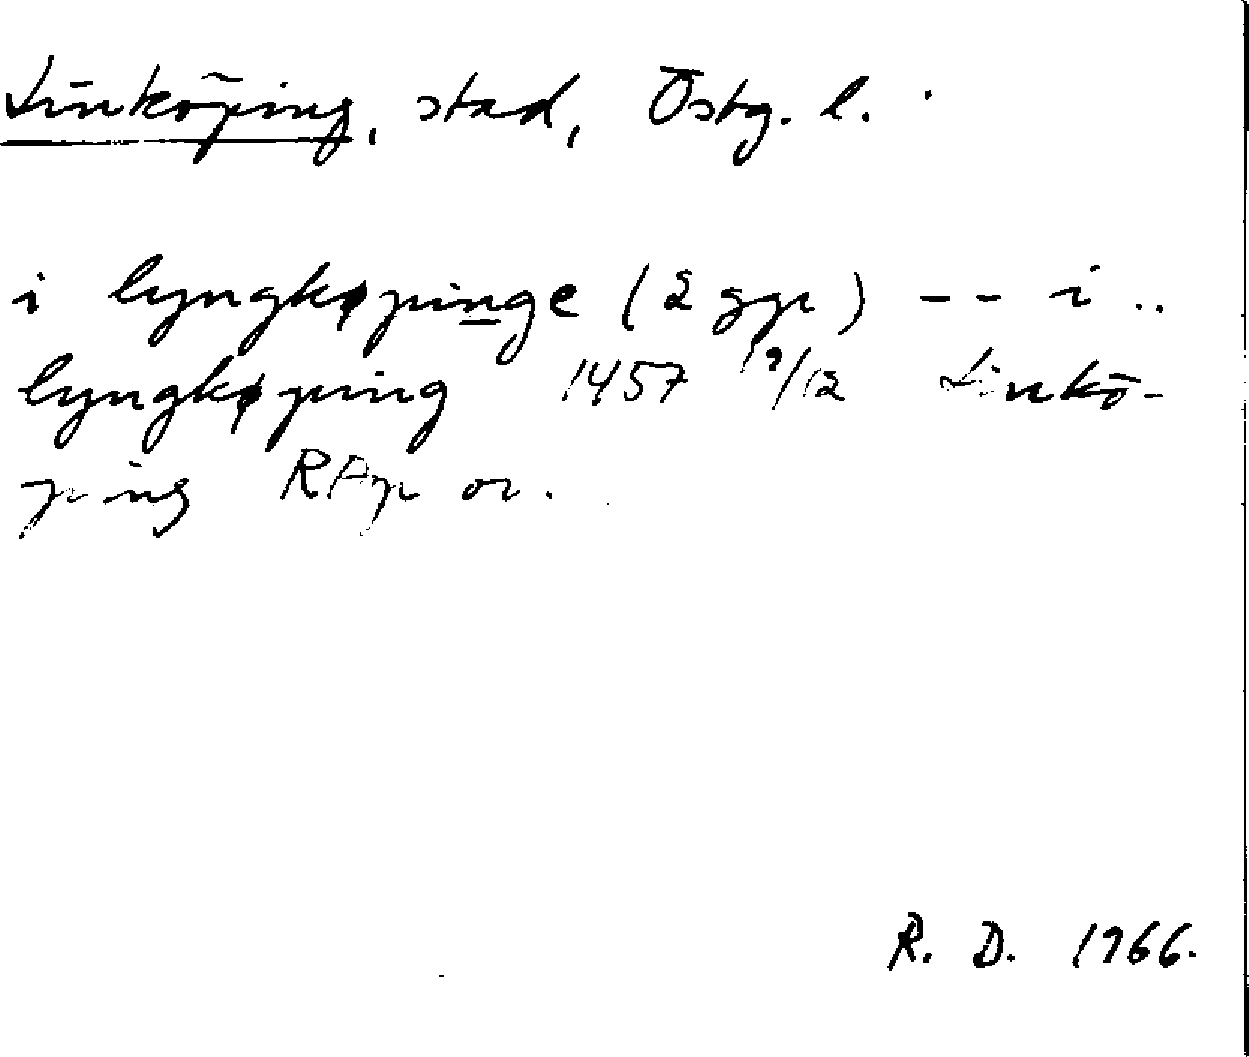 Linköping, stad, Östg. l.
i lyngkøpinge (2 ggr) -- i ..
lyngkøping 1457 19/12 Linkö-
ping RApp or.
R. D. 1966.